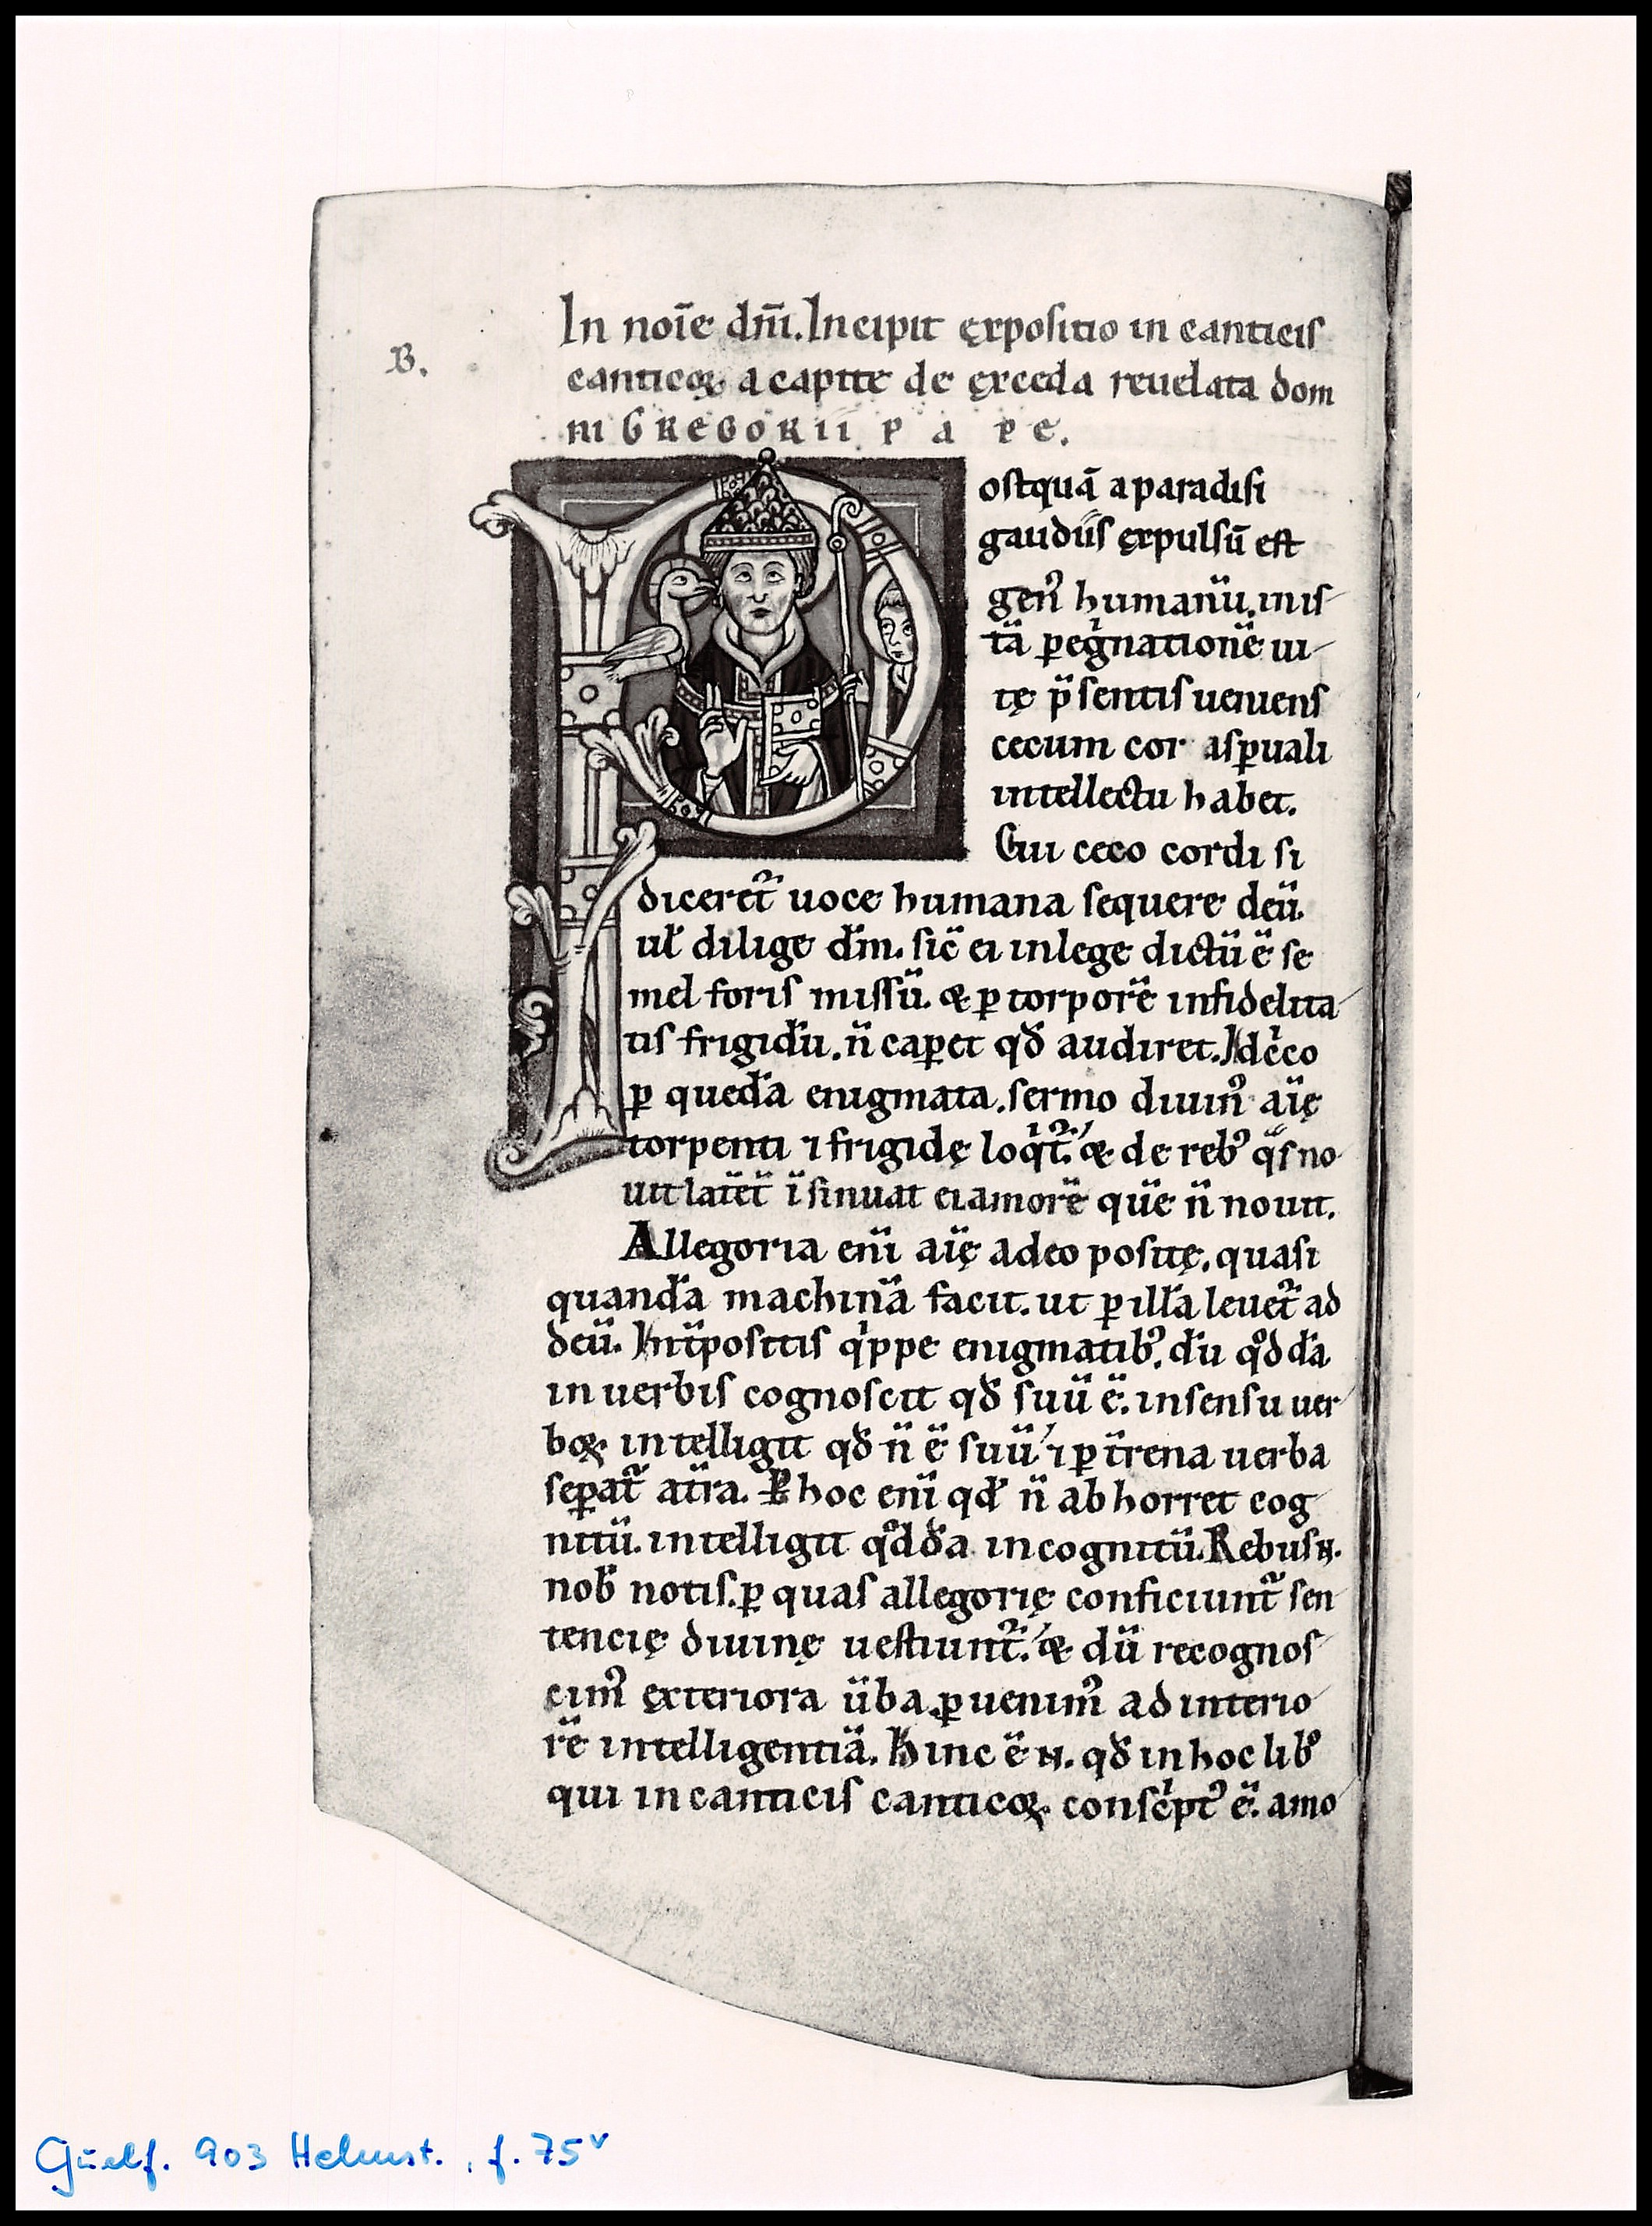 B.
In noīe dn̄i. Incipit ęxpositio in canticis
canticoꝝ a capite de ęxceda reuelata dom
ni GREGORII P A P E.
Postquā a paradisi
gaudiis ęxpulsū est
gen᷒ humanū. in is
tā peg̍natione ui
tę p̄sentis ueniens
cecum cor asp̄uali
intellectu habet.
Cui ceco cordi si
diceret᷒ uoce humana sequere deū.
ul̄ dilige dm̄. sic̄ ei in lege dictū ē se
mel foris missū. & ꝑ torporē infidelita
tis frigidū. n̄ caꝑet qd̄ audiret. Idcͥco
ꝑ quedā enigmata. sermo diuin᷒ aīę
torpenti ⁊ frigidę loqͥt᷒. & de reb᷒ qͣs no
uit latēt īsinuat ei amorē quē n̄ nouit.
Allegoria enī aīę a deo positę. quasi
quandā machinā facit. ut ꝑ illā leuet᷒ ad
deū. Int̄positis qͥppe enigmatib᷒. dū qͦddā
in uerbis cognoscit qd̄ suū ē. in sensu uer
boꝝ intelligit qd̄ n̄ ē suū ⁊ ꝑ t̄rena uerba
seꝑat᷒ at̄ra. P hoc enī qd̄ n̄ abhorret cog
nitū. intelligit qͦddā incognitū. Rebus n.
nob̄ notis. ꝑ quas allegorię conficiunt᷒ sen
tencię diuinę uestiunt᷒. & dū recognos
cim᷒ ęxteriora ūba. ꝑuenim᷒ ad interio
rē intelligentiā. Hinc ē n. qd̄ in hoc lib᷒
qui in canticis canticoꝝ conscͥpt᷒ ē. amo
Guelf. 903 Helmst., f. 75v